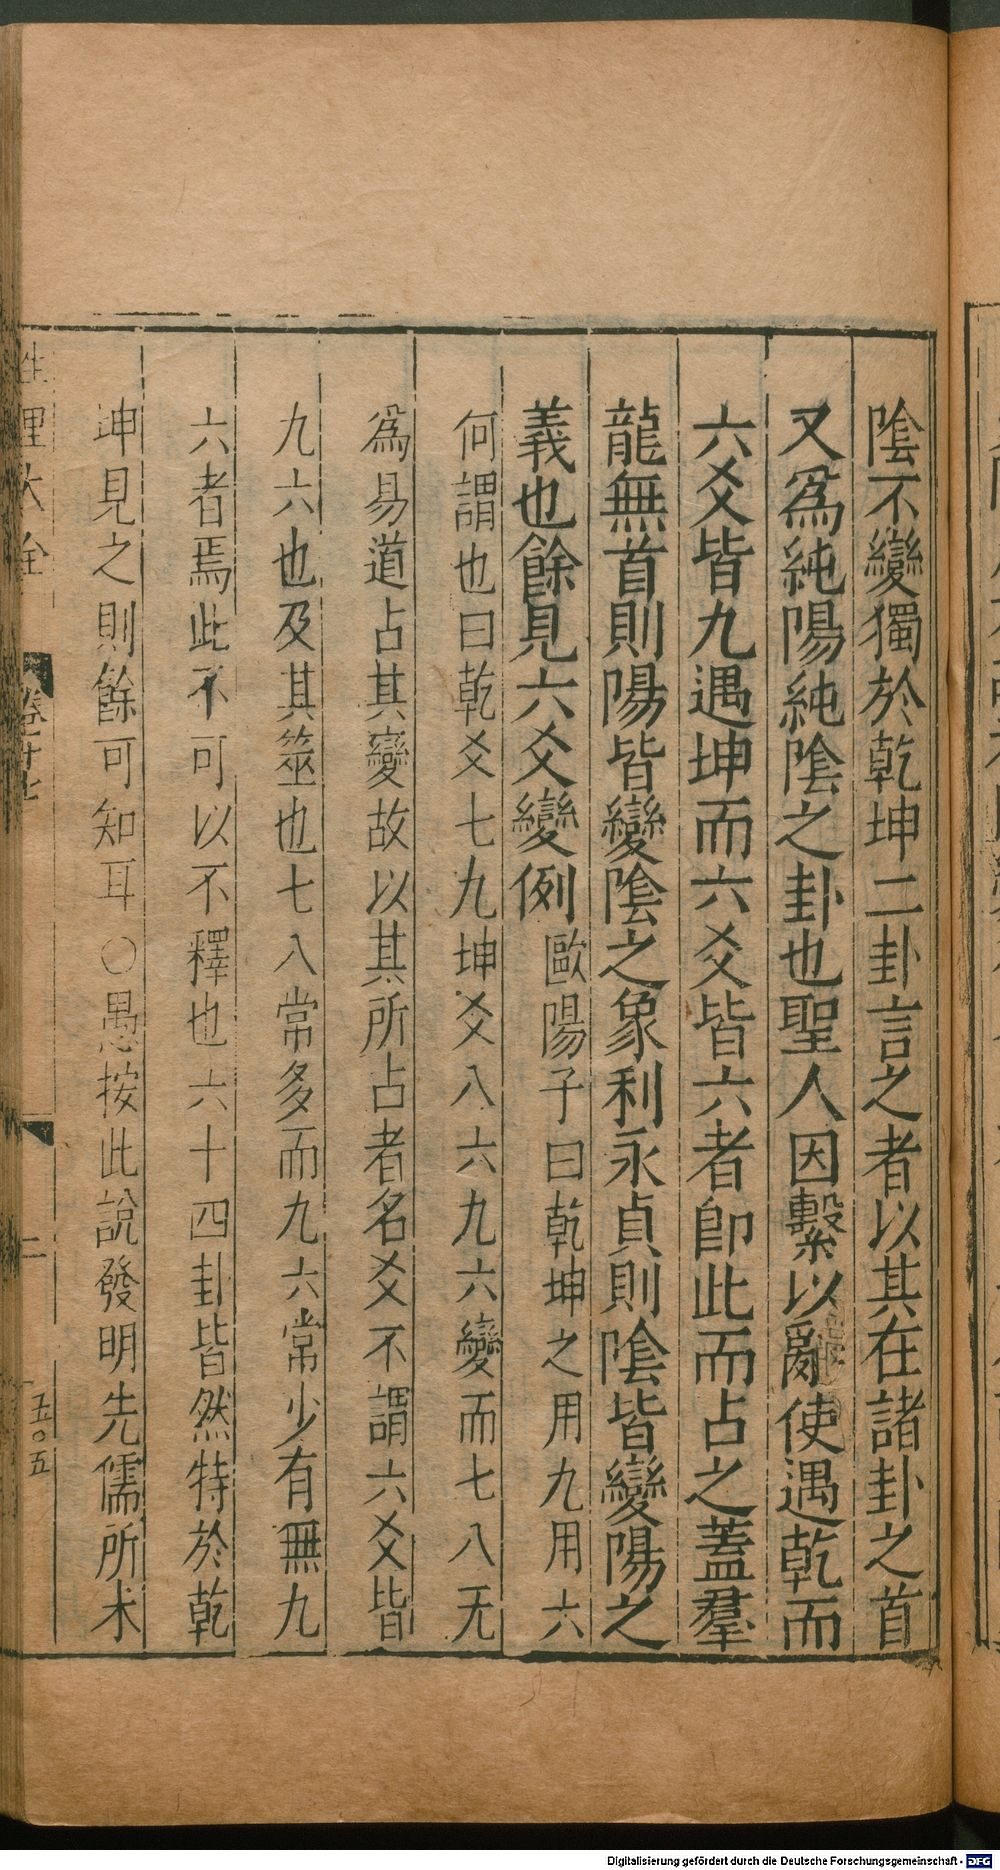 陰不變獨於乾坤二卦言之者以其在諸卦之首
又爲純陽純陰之卦也聖人因繫以辭使遇乾而
六爻皆九遇坤而六爻皆六者即此而占之蓋羣
龍無首則陽皆變陰之象利永貞則陰皆變陽之
義也餘見六爻變例歐陽子曰乾坤之用九用六
何謂也曰乾爻七九坤爻八六九六變而七八无
爲易道占其變故以其所占者名爻不謂六爻皆
九六也及其筮也七八常多而九六常少有無九
六者焉此不可以不釋也六十四卦皆然特於乾
坤見之則餘可知耳○愚按此說發明先儒所未
性理大全 卷十七 二 五〇五
Digitalisierung gefördert durch die Deutsche Forschungsgemeinschaft - DFG